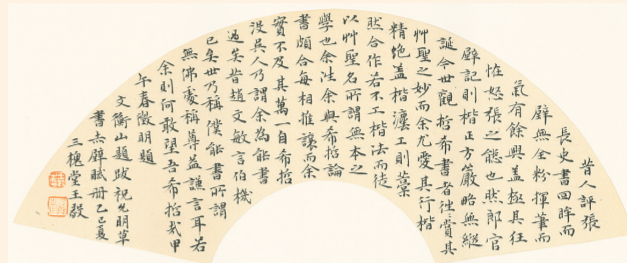 昔人評張
長史書回眸而
壁無全粉揮筆而
氣有餘興蓋極其狂
怪怒張之態也然郎官
壁記則楷正方嚴略無縱
誕今世觀哲希書者往往賞其
艸聖之妙而余尤愛其行楷
精絕盖楷灋工則藁
然合作若不工楷法而徒
以艸聖名所謂無本之
學也余往余與希哲論
書頗合每相推讓而余
實不及其萬一自希哲
沒吳人乃謂余為能書
過矣昔趙文敏言伯機
已矣世乃稱僕能書所謂
無佛處稱尊蓋謙言耳若
余則何敢望吾希哲哉甲
午春徵明題
文衡山題跋祝允明草
書赤壁賦冊乙巳夏
三槐堂王毅